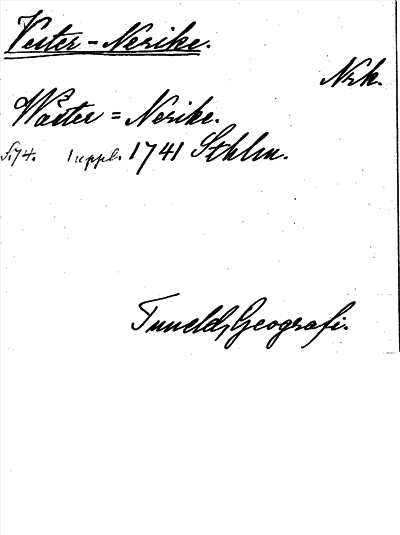 Vester-Nerike.
Nrk.
Wäster=Nerike.
S.74. 1 uppl. 1741 Sthlm.
Tunelds Geografi.